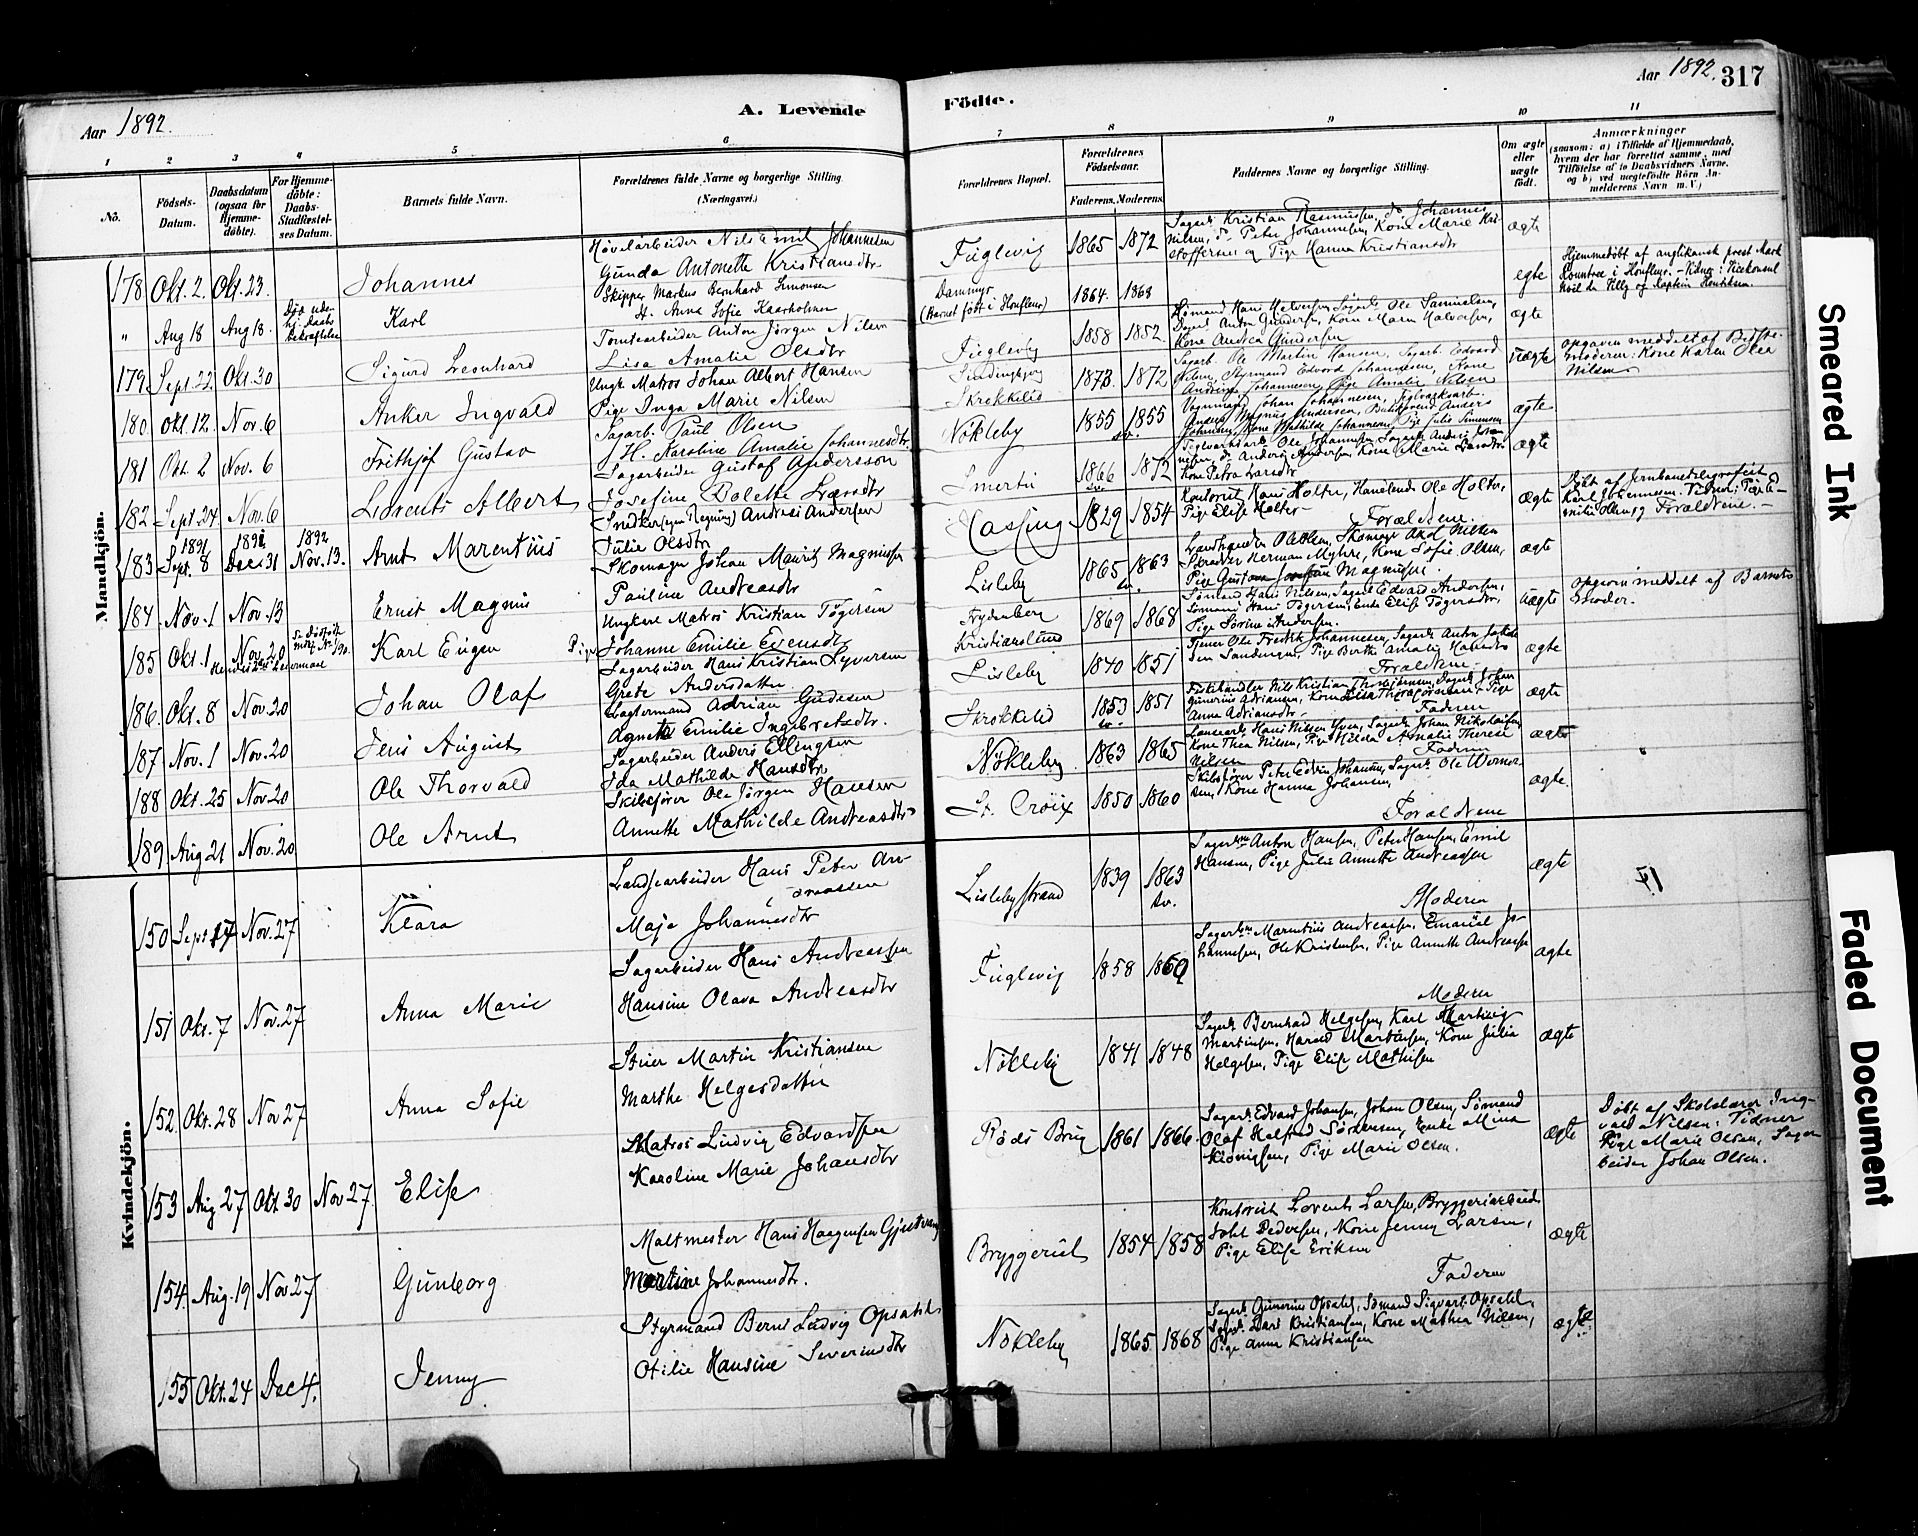 Aar 1892.
A. Levende
Födte.
Aar 1892. 317
1 2 3 4 5 6 7 8 9 10 11
No.
Födsels-
Datum.
Daabsdatum
(ogsaa för
Hjemme-
döbte).
For Hjemme-
döbte:
Daabs-
Stadfæstel-
ses Datum.
Barnets fulde Navn.
Forældrenes fulde Navne og borgerlige Stilling.
(Næringsvei.)
Forældrenes Bopæl.
Forældrenes
Födselsaar.
Faderens. Moderens.
Faddernes Navne og borgerlige Stilling.
Om ægte
eller
uægte
født.
Anmærkninger
(saasom: a) i Tilfælde af Hjemmedaab,
hvem der har forrettet samme, med
Tilføielse af to Daabsvidners Navne,
og b) ved uægtefødte Börn An-
melderens Navn m. V.)
Mandkjön.
178 Okt. 2. Okt. 23. Johannes
Høvelarbeider Nils Emil Johannesen
Gunda Antonette Kristiansdtr
Fuglevig 1865 1872
Sagarb. Kristian Rasmussen, do Johannes
Nilsen, do Peter Johannesen, Kone Marie Kri-
stoffersen og Pige Hanna Kristiansdtr
ægte
" Aug 18 Aug 18. Karl
Skipper Markus Bernhard Simonsen
H. Anna Sofie Kaarholmen
Dammyr
(Barnet født i Honfleur)
1864. 1868
egte
Hjemmedøbt af anglikansk prest Mark
Rountree i Honfleur. - Vidner: Vicekonsul
179 Sept. 22 Okt. 30 Sigurd Leonhard
Tomtearbeider Anton Jørgen Nilsen
Lisa Amalie Olsdtr
Fuglevig 1858 1852.
Sømand Hans Halvorsen, Sagarb. Ole Samuelsen,
Kone Andrea Gundersen
ægte
180 Okt. 12. Nov. 6 Anker Ingvald
Ungk. Matros Johan Albert Hansen
Pige Inga Marie Nilsen
Skrekkelid
1873. 1872
Sagarb. Ole Martin Hansen, Sagarb. Edvard
Nilsen, Styrmand Edvard Johannesen, Kone
Andrine Johannesen, Pige Amalie Nilsen
uægte
opgaven meddelt af Bedste-
moderen: Kone Karen Olea
Nilsen
181 Okt. 2 Nov. 6 Frithjof Gustav
Sagarb. Paul Olsen
H. Karoline Amalie Johannesdtr.
Nökleby 1855 1855
sv.
ægte
182 Sept. 24 Nov. 6 Lorents Albert
Sagarbeider Gustaf Andersson
Josefine Bolette Larsdtr
Smertu 1866 1872
sv.
Kone Petra Larsdtr
ægte
1891 1891 1892
183 Sept. 8 Dec. 31 Nov. 13. Arnt Marentius
Snedker (egen Regning) Andreas Andersen
Julie Olsdtr
Hassing 1829 1854
Kontorist Hans Holter, Handlende Ole Holter,
Pige Elise Holter - Forældrene.
ægte
Döbt af Jernbanetelegrafist
Karl Johannesen. Vidner: Pige E-
milie Olsen og Forældrene. -
184 Nov. 1 Nov. 13 Ernst Magnus
Skomager Johan Mauritz Magnussen
Pauline Andreasdtr
Lisleby 1865 1863
sv.
Skræder Herman Myhre, Kone Sofie Olsen,
Magnussen.
ægte
185 Okt. 1 Nov. 20 Karl Eugen
Ungkarl Matros Kristian Tøgersen
Pige Johanne Emilie Evensdtr
Frydenberg
Kristianslund
1869 1868
Sømand Hans Nilsen, Sagarb. Edvard Andersen,
Sømand Hans Tøgersen, Enke Elise Tøgersdtr,
Pige Sørine Andersen.
uægte
opgaven meddelt af Barnets
Moder.
186. Okt. 8 Nov. 20 Johan Olaf
Sagarbeider Hans Kristian Syversen
Grete Andersdatter
Lisleby 1840 1851
Tjener Ole Fredrik Johannesen, Sagarb. Anton Jakob-
sen Sandengen, Pige Berthe Amalie Hansdtr
Forældrene -
ægte
187 Nov. 1 Nov. 20 Jens August
Slagtermand Adrian Gudesen
Agnethe Emilie Ingebretsdtr.
Skrokkelid 1853 1851
sv.
Fiskehandler Nils Kristian Thorbjørnsen, Sagarb. Johan
Gunerius Adriansen,
Anna Adriansdtr. Faderen
ægte
188 Okt. 25 Nov. 20 Ole Thorvald
Sagarbeider Anders Ellingsen
Ida Mathilde Hansdtr
Nökleby 1863 1865
Kone Thea Nilsen, Pige Hilda Amalie Therese
Nilsen Faderen
ægte
189 Aug 21 Nov. 20 Ole Arnt
Skibsfører Ole Jørgen Hansen
Annette Mathilde Andreasdtr
St. Croix 1850 1860
Skibsfører Peter Edvin Johansen, Sagarb. Ole Werner-
sen, Kone Hanna Johansen,
Forældrene
ægte.
Kvindekjön.
150 Sept. 17 Nov. 27 Klara
Landsearbeider Hans Peter An-
dreassen
Maja Johannesdtr
Lislebystrand 1839 1863
sv.
Sagarbrne Anton Hansen, Peter Hansen, Emil
Hansen, Pige Julie Annette Andreassen
Moderen
ægte
151 Okt. 7 Nov. 27 Anna Marie
Sagarbeider Hans Andreassen
Hansine Olava Andreasdtr
Fuglevig 1858 1860
Sagarbrne Marentius Andreassen, Emanuel Jo-
hannesen, Ole Kristensen, Pige Annette Andreassen
Moderen
ægte
152. Okt. 28 Nov 27 Anna Sofie
Stuer Martin Kristiansen
Marthe Helgesdatter
Nökleby 1841 1848
Sagarb. Bernhard Helgesen, Karl Hartvig
Martinsen, Harald Martinsen, Kone Julia
Helgesen, Pige Elise Mathisen
ægte
153 Aug 27 Okt 30 Nov 27. Elise
Matros Ludvig Edvardsen
Karoline Marie Johansdtr
Röds Brug 1861 1866
Sagarb. Edvard Johansen, Johan Olsen, Sømand
Olaf Halfred Sørensen, Enke Mina
Kionigsen, Pige Marie Olsen.
ægte
Döbt af Skolelærer Ing-
vald Nilsen. Vidner
Pige Marie Olsen, Sagar-
beider Johan Olsen.
154. Aug. 19 Nov 27 Gunborg
Maltmester Hans Haagensen Gjestvang
Martine Johannesdtr.
Bryggeriet 1854 1858
Kontorist Lorents Larsen, Bryggeriarbeid.
Johl Pedersen, Kone Jenny Larsen,
Pige Elise Eriksen
Faderen
ægte
155 Okt. 24 Dec 4. Jenny
Styrmand Bernt Ludvig Opsahl
Otilie Hansine Severinsdtr
Nökleby 1865. 1868
Sagarb. Gunerius Opsahl, Sømand Sigvart Opsahl,
Sagarb. Lars Kristiansen, Kone Mathea Nilsen,
Pige Anna Kristiansen
ægte
Smeared Ink
Faded Document